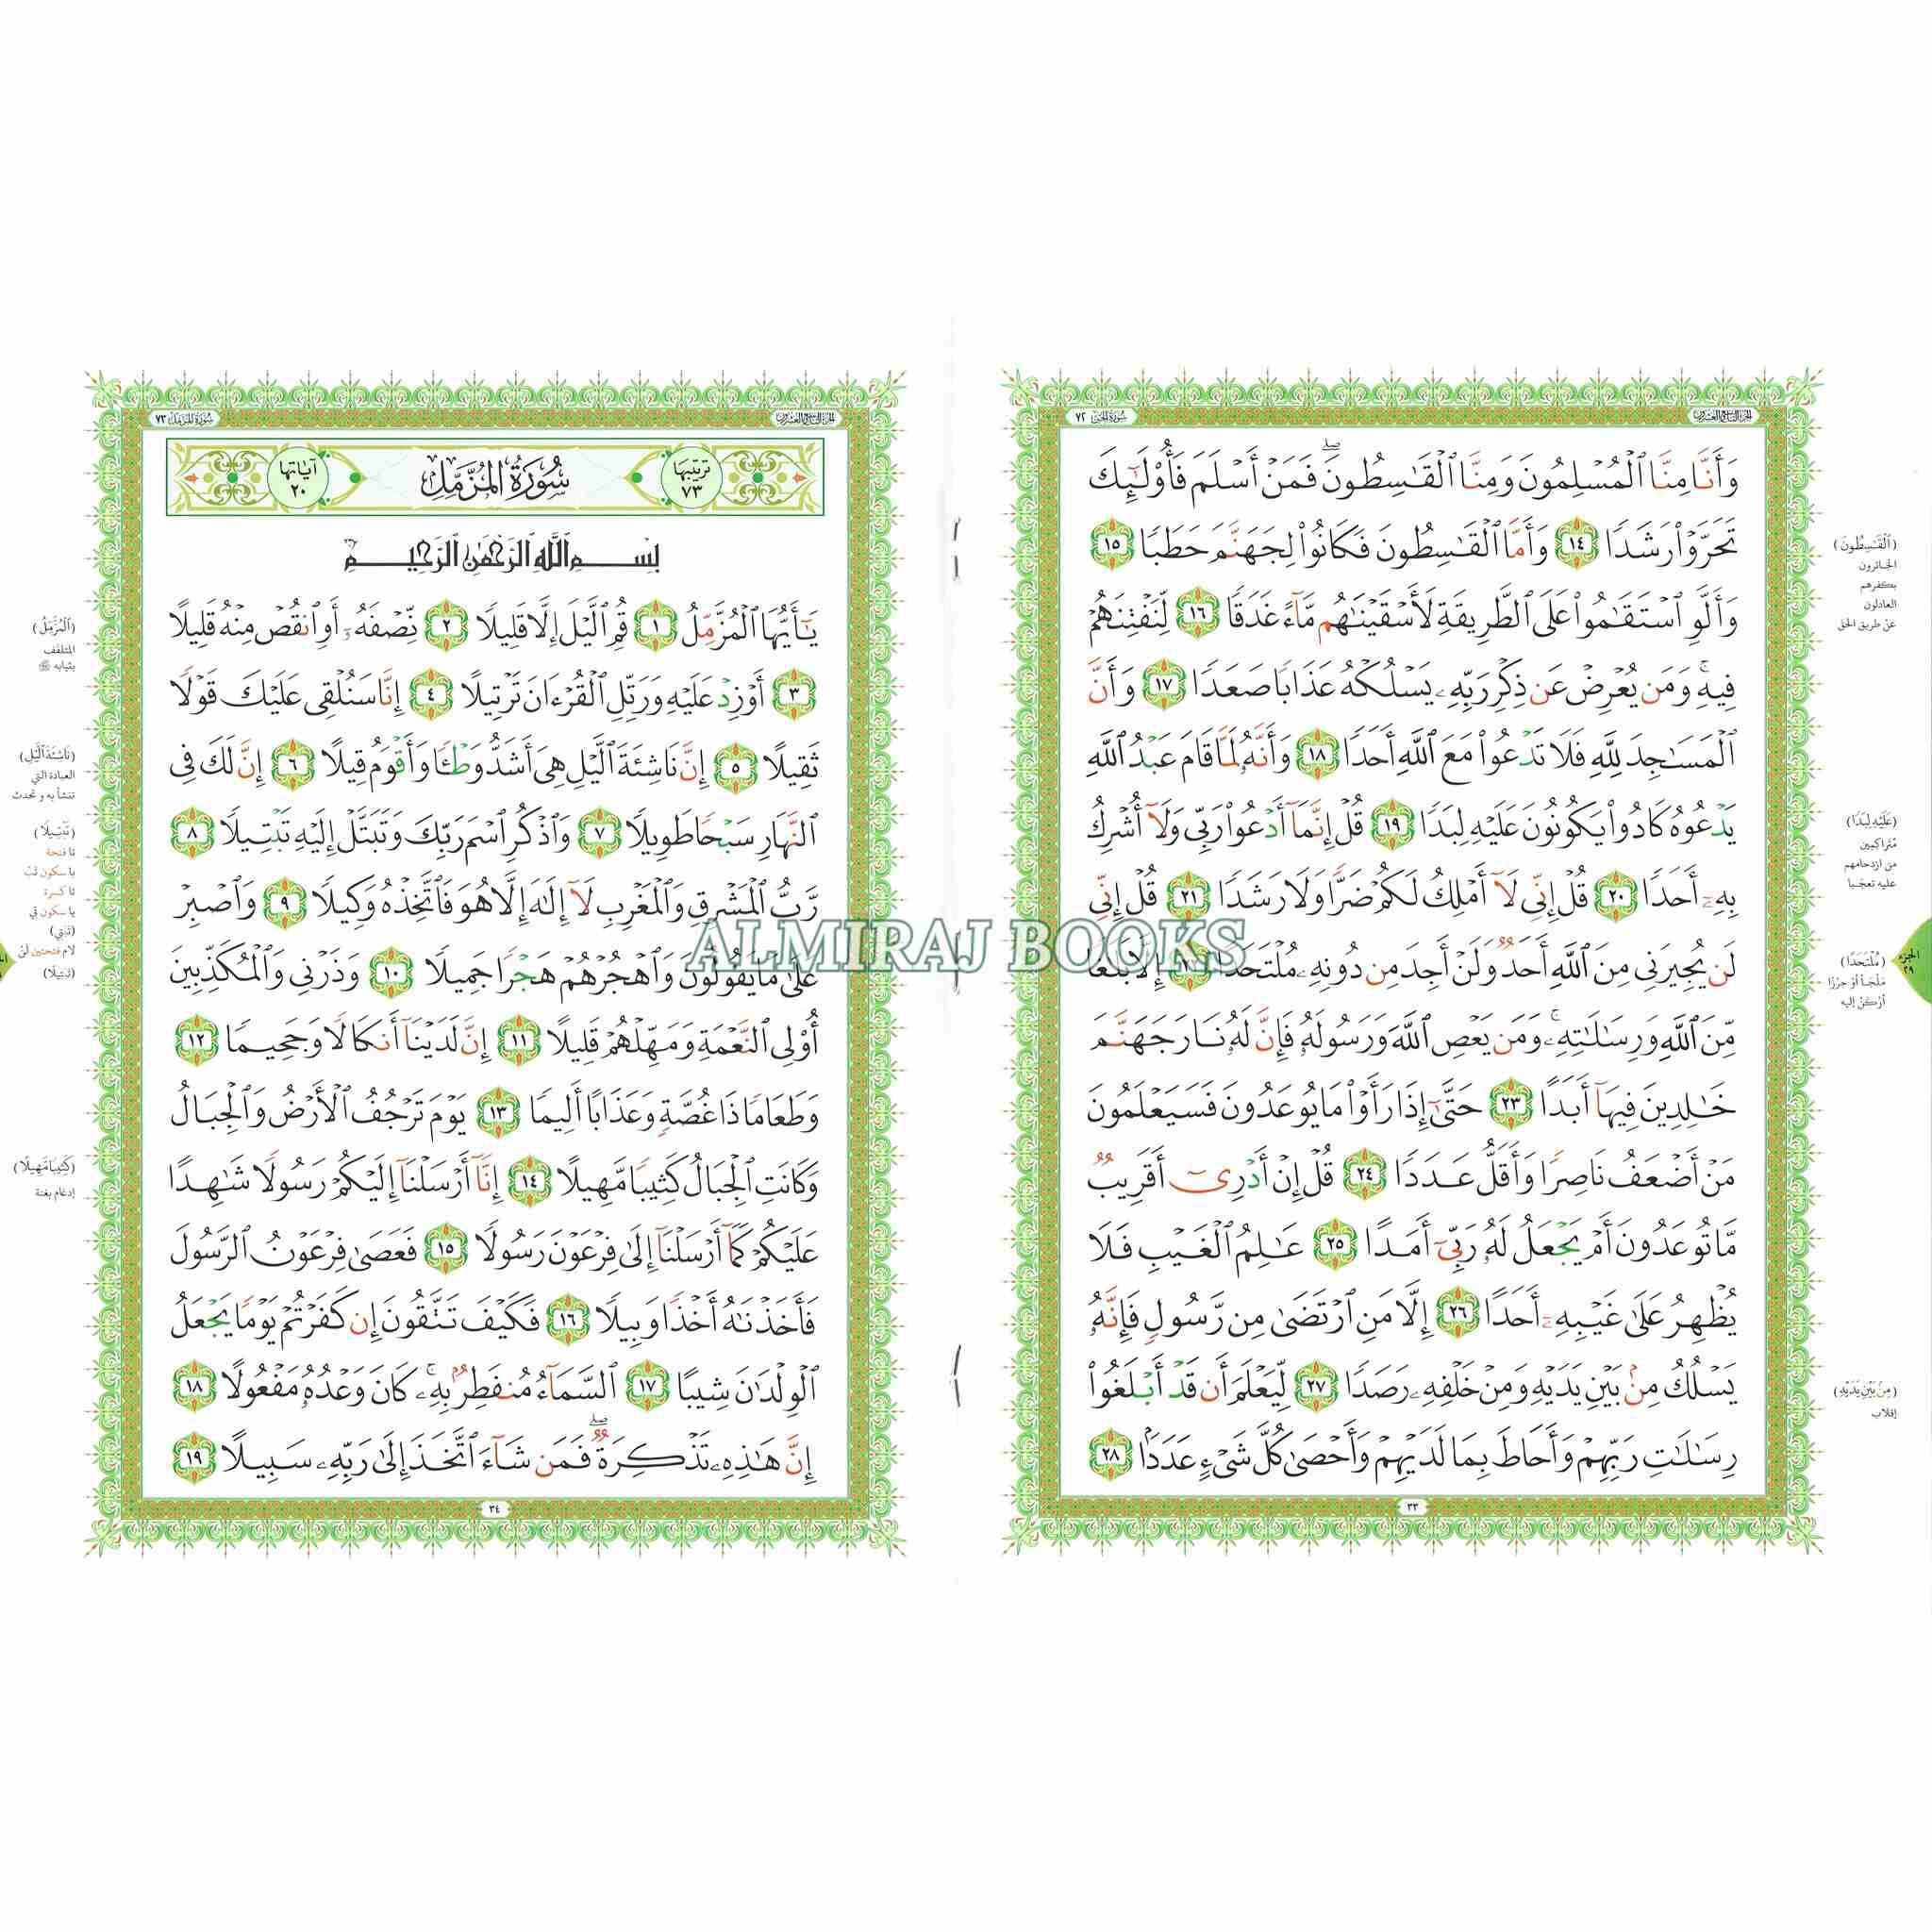 سُورَةُ الجِنّ ٧٢
الجزء التاسع والعشرون
وَأَنَّا مِنَّا ٱلْمُسْلِمُونَ وَمِنَّا ٱلْقَـٰسِطُونَ ۖ فَمَنْ أَسْلَمَ فَأُو۟لَـٰٓئِكَ
تَحَرَّوْا۟ رَشَدًا ١٤ وَأَمَّا ٱلْقَـٰسِطُونَ فَكَانُوا۟ لِجَهَنَّمَ حَطَبًا ١٥
وَأَلَّوِ ٱسْتَقَـٰمُوا۟ عَلَى ٱلطَّرِيقَةِ لَأَسْقَيْنَـٰهُم مَّآءً غَدَقًا ١٦ لِّنَفْتِنَهُمْ
فِيهِ ۚ وَمَن يُعْرِضْ عَن ذِكْرِ رَبِّهِۦ يَسْلُكْهُ عَذَابًا صَعَدًا ١٧ وَأَنَّ
ٱلْمَسَـٰجِدَ لِلَّهِ فَلَا تَدْعُوا۟ مَعَ ٱللَّهِ أَحَدًا ١٨ وَأَنَّهُۥ لَمَّا قَامَ عَبْدُ ٱللَّهِ
يَدْعُوهُ كَادُوا۟ يَكُونُونَ عَلَيْهِ لِبَدًا ١٩ قُلْ إِنَّمَآ أَدْعُوا۟ رَبِّى وَلَآ أُشْرِكُ
بِهِۦٓ أَحَدًا ٢٠ قُلْ إِنِّى لَآ أَمْلِكُ لَكُمْ ضَرًّا وَلَا رَشَدًا ٢١ قُلْ إِنِّى
لَن يُجِيرَنِى مِنَ ٱللَّهِ أَحَدٌ وَلَنْ أَجِدَ مِن دُونِهِۦ مُلْتَحَدًا إِلَّا بَلَـٰغًا
مِّنَ ٱللَّهِ وَرِسَـٰلَـٰتِهِۦ ۚ وَمَن يَعْصِ ٱللَّهَ وَرَسُولَهُۥ فَإِنَّ لَهُۥ نَارَ جَهَنَّمَ
خَـٰلِدِينَ فِيهَآ أَبَدًا ٢٣ حَتَّىٰٓ إِذَا رَأَوْا۟ مَا يُوعَدُونَ فَسَيَعْلَمُونَ
مَنْ أَضْعَفُ نَاصِرًا وَأَقَلُّ عَدَدًا ٢٤ قُلْ إِنْ أَدْرِىٓ أَقَرِيبٌ
مَّا تُوعَدُونَ أَمْ يَجْعَلُ لَهُۥ رَبِّىٓ أَمَدًا ٢٥ عَـٰلِمُ ٱلْغَيْبِ فَلَا
يُظْهِرُ عَلَىٰ غَيْبِهِۦٓ أَحَدًا ٢٦ إِلَّا مَنِ ٱرْتَضَىٰ مِن رَّسُولٍ فَإِنَّهُۥ
يَسْلُكُ مِنۢ بَيْنِ يَدَيْهِ وَمِنْ خَلْفِهِۦ رَصَدًا ٢٧ لِّيَعْلَمَ أَن قَدْ أَبْلَغُوا۟
رِسَـٰلَـٰتِ رَبِّهِمْ وَأَحَاطَ بِمَا لَدَيْهِمْ وَأَحْصَىٰ كُلَّ شَىْءٍ عَدَدًۢا ٢٨
٣٣
(ٱلْقَـٰسِطُونَ)
الجائرون
بكفرهم
العادلون
عن طريق الحق
(عَلَيْهِ لِبَدًا)
مُتَراكِمِين
من ازدحامهم
عليه تعجّبا
(مُلْتَحَدًا)
مَلْجَأً أوْ حِرْزًا
أرْكَنُ إليه
(مِنۢ بَيْنِ يَدَيْهِ)
إقلاب
الجزء
٢٩
سُورَةُ المُزَّمِّل ٧٣
الجزء التاسع والعشرون
ترتيبها
٧٣
سُورَةُ المُزَّمِّل
آياتها
٢٠
بِسْمِ ٱللَّهِ ٱلرَّحْمَـٰنِ ٱلرَّحِيمِ
يَـٰٓأَيُّهَا ٱلْمُزَّمِّلُ ١ قُمِ ٱلَّيْلَ إِلَّا قَلِيلًا ٢ نِّصْفَهُۥٓ أَوِ ٱنقُصْ مِنْهُ قَلِيلًا
٣ أَوْ زِدْ عَلَيْهِ وَرَتِّلِ ٱلْقُرْءَانَ تَرْتِيلًا ٤ إِنَّا سَنُلْقِى عَلَيْكَ قَوْلًا
ثَقِيلًا ٥ إِنَّ نَاشِئَةَ ٱلَّيْلِ هِىَ أَشَدُّ وَطْـًٔا وَأَقْوَمُ قِيلًا ٦ إِنَّ لَكَ فِى
ٱلنَّهَارِ سَبْحًا طَوِيلًا ٧ وَٱذْكُرِ ٱسْمَ رَبِّكَ وَتَبَتَّلْ إِلَيْهِ تَبْتِيلًا ٨
رَّبُّ ٱلْمَشْرِقِ وَٱلْمَغْرِبِ لَآ إِلَـٰهَ إِلَّا هُوَ فَٱتَّخِذْهُ وَكِيلًا ٩ وَٱصْبِرْ
عَلَىٰ مَا يَقُولُونَ وَٱهْجُرْهُمْ هَجْرًا جَمِيلًا ١٠ وَذَرْنِى وَٱلْمُكَذِّبِينَ
أُو۟لِى ٱلنَّعْمَةِ وَمَهِّلْهُمْ قَلِيلًا ١١ إِنَّ لَدَيْنَآ أَنكَالًا وَجَحِيمًا ١٢
وَطَعَامًا ذَا غُصَّةٍ وَعَذَابًا أَلِيمًا ١٣ يَوْمَ تَرْجُفُ ٱلْأَرْضُ وَٱلْجِبَالُ
وَكَانَتِ ٱلْجِبَالُ كَثِيبًا مَّهِيلًا ١٤ إِنَّآ أَرْسَلْنَآ إِلَيْكُمْ رَسُولًا شَـٰهِدًا
عَلَيْكُمْ كَمَآ أَرْسَلْنَآ إِلَىٰ فِرْعَوْنَ رَسُولًا ١٥ فَعَصَىٰ فِرْعَوْنُ ٱلرَّسُولَ
فَأَخَذْنَـٰهُ أَخْذًا وَبِيلًا ١٦ فَكَيْفَ تَتَّقُونَ إِن كَفَرْتُمْ يَوْمًا يَجْعَلُ
ٱلْوِلْدَٰنَ شِيبًا ١٧ ٱلسَّمَآءُ مُنفَطِرٌۢ بِهِۦ ۚ كَانَ وَعْدُهُۥ مَفْعُولًا ١٨
إِنَّ هَـٰذِهِۦ تَذْكِرَةٌ ۖ فَمَن شَآءَ ٱتَّخَذَ إِلَىٰ رَبِّهِۦ سَبِيلًا ١٩
٣٤
(ٱلْمُزَّمِّلُ)
المتلفف
بثيابه ﷺ
(نَاشِئَةَ ٱلَّيْلِ)
العبادة التي
تنشأ به و تحدث
(تَبْتِيلًا)
تا فتحة
با سكون تَبْ
تا كسرة
يا سكون تِي
(تَبْتِي)
لام فتحتين لًا
(تَبْتِيلًا)
(كَثِيبًا مَّهِيلًا)
إدغام بغنة
ALMIRAJ BOOKS